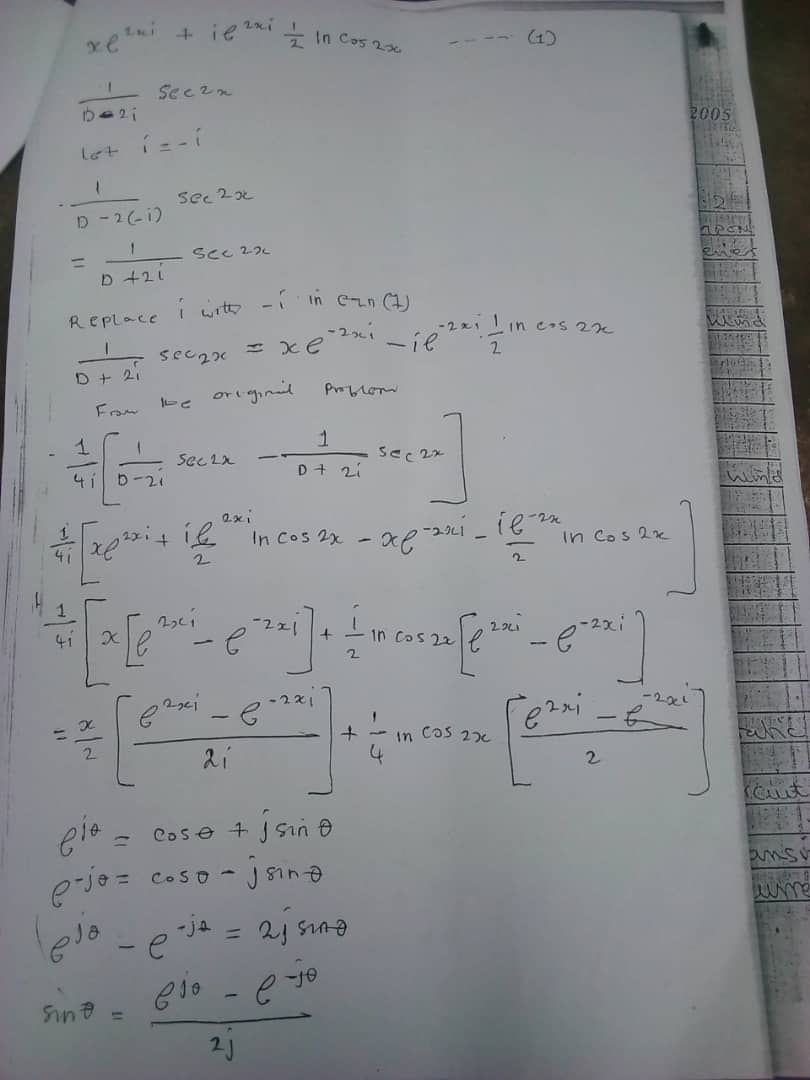 xe^{2xi} + ie^{2xi} 1/2 ln cos 2x ---- (1)
1/(D-2i) sec2x
let i = -i
1/(D-2(-i)) sec2x
= 1/(D+2i) sec 2x
Replace i with -i in eqn (1)
1/(D+2i) sec2x = xe^{-2xi} - ie^{-2xi} 1/2 ln cos 2x
From the original problem
1/4i [1/(D-2i) sec2x - 1/(D+2i) sec2x]
1/4i [xe^{2xi} + ie^{2xi}/2 ln cos 2x - xe^{-2xi} - ie^{-2x}/2 ln cos 2x]
1/4i [x[e^{2xi} - e^{-2xi}] + i/2 ln cos 2x [e^{2xi} - e^{-2xi}]]
= x/2 [(e^{2xi} - e^{-2xi})/2i] + 1/4 ln cos 2x [(e^{2xi} - e^{-2xi})/2]
e^{jθ} = cosθ + j sin θ
e^{-jθ} = cosθ - j sinθ
e^{jθ} - e^{-jθ} = 2j sinθ
sinθ = (e^{jθ} - e^{-jθ})/2j
2005